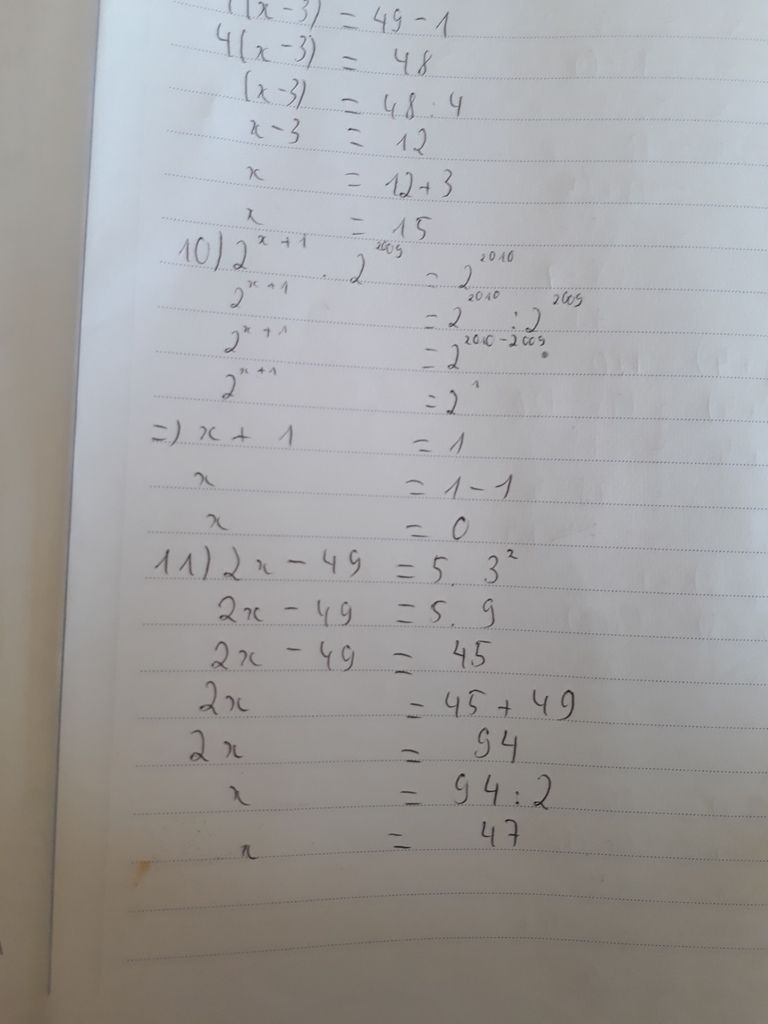 (x-3) = 49-1
4(x-3) = 48
(x-3) = 48:4
x-3 = 12
x = 12+3
x = 15
10) 2^{x+1} . 2^{2009} = 2^{2010}
2^{x+1} = 2^{2010} : 2^{2009}
2^{x+1} = 2^{2010-2009}
2^{x+1} = 2^{1}
=) x + 1 = 1
x = 1-1
x = 0
11) 2x - 49 = 5. 3²
2x - 49 = 5. 9
2x - 49 = 45
2x = 45 + 49
2x = 94
x = 94:2
x = 47